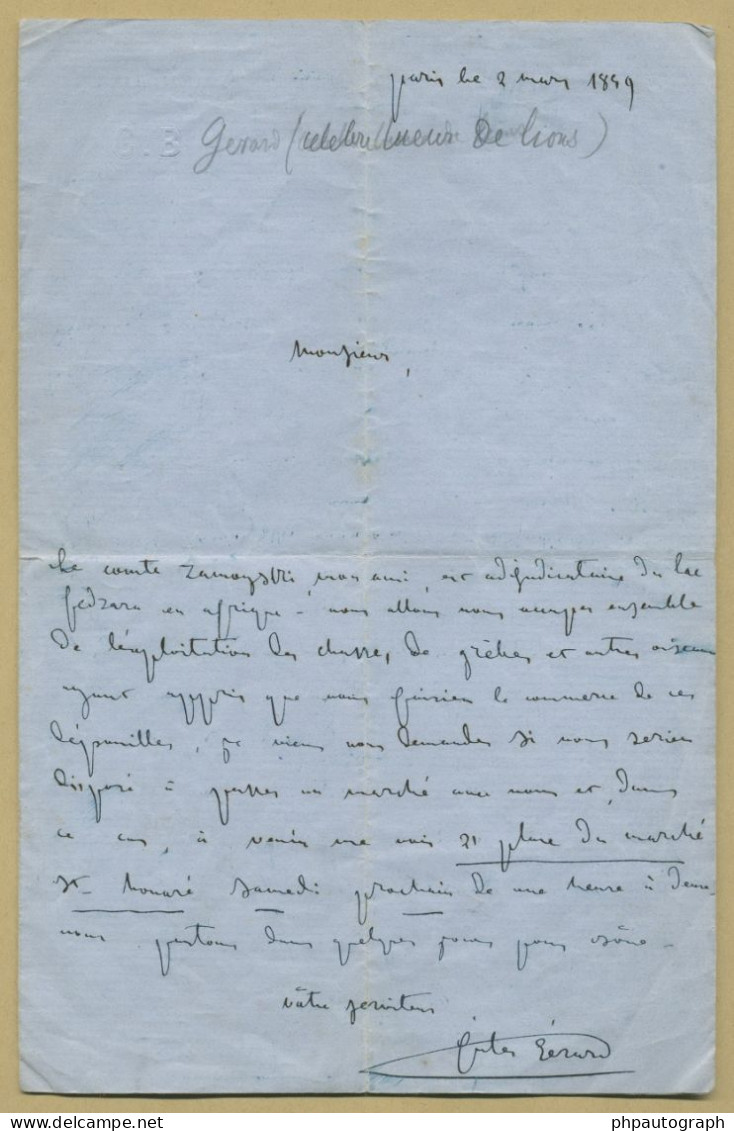 paris le 2 mars 1859
Gerard (celebre tueur De lions)
Monsieur,
Le comte Zamoyski, mon ami, est adjudicataire du lac
fedzara en afrique – nous allons nous occuper ensemble
De l'exploitation des chasses, de grèbes et autres oiseaux
ayant appris que vous faisiez le commerce de ces
dépouilles, je viens vous demander si vous seriez
disposé à passer un marché avec nous et, dans
ce cas, à venir me voir 21 place du marché
St honoré samedi prochain de une heure à deux –
nous partons dans quelques jours pour bône –
vôtre serviteur
Jules Gérard
phpautograph